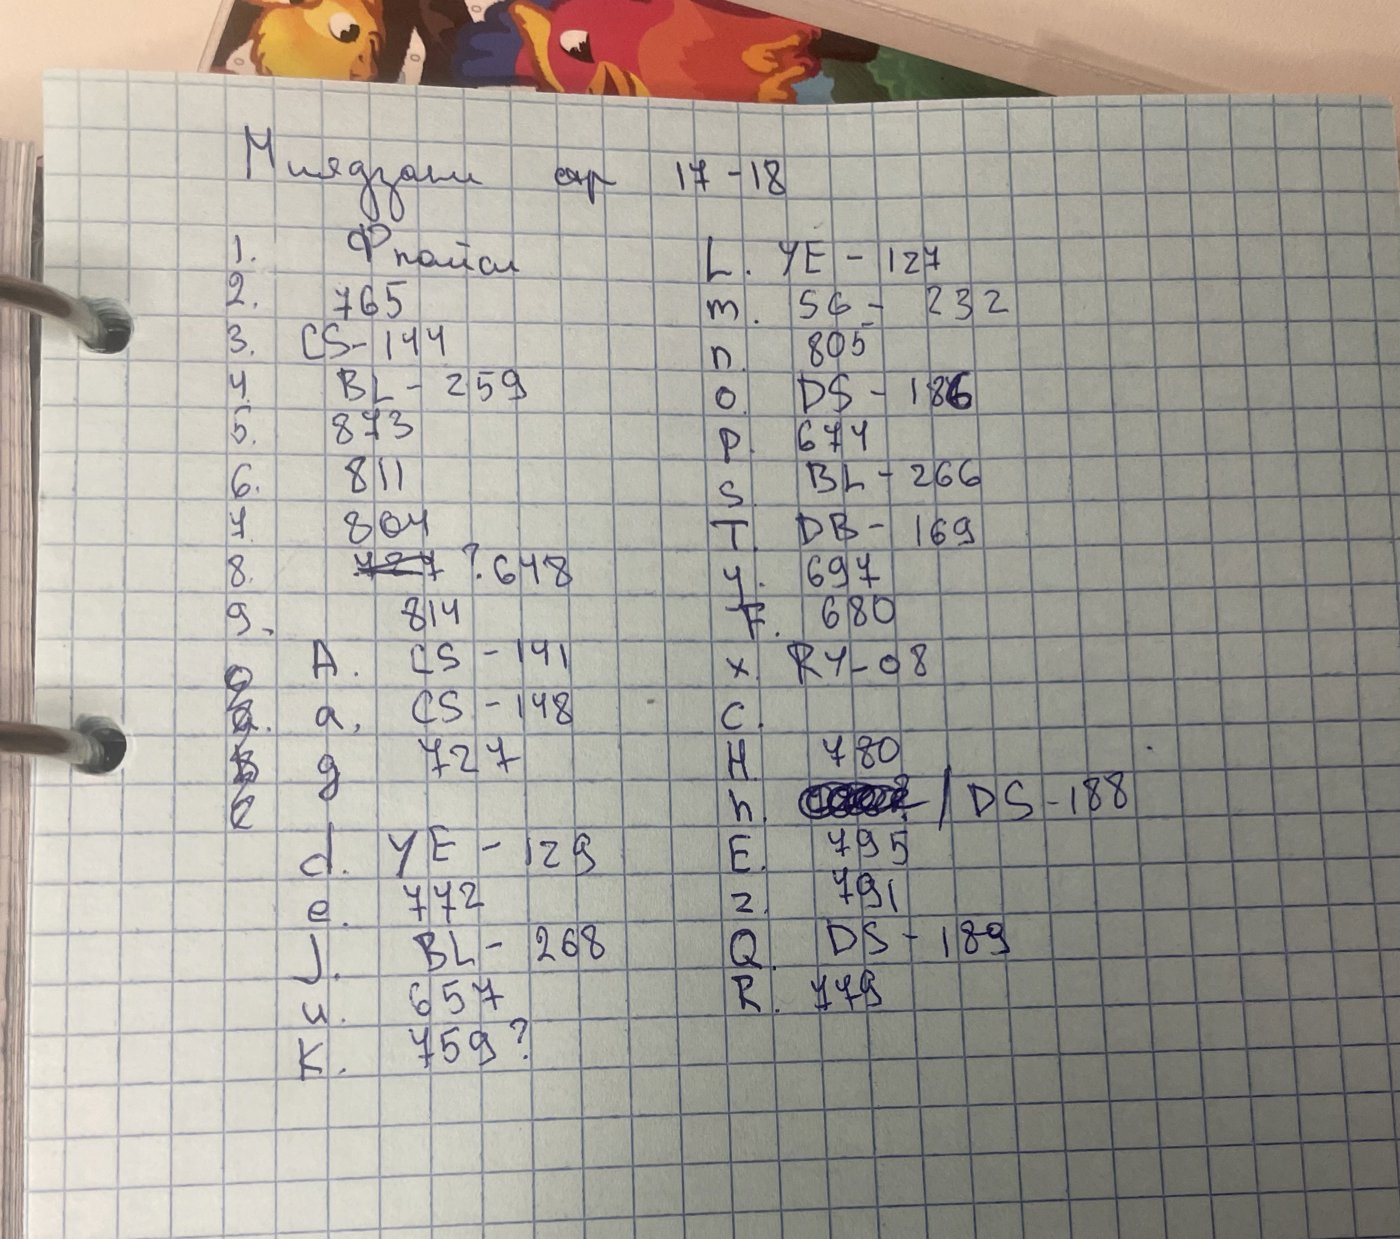 Миядзаки стр 17-18
1. Фпойсл
2. 765
3. CS-144
4. BL-259
5. 873
6. 811
7. 804
8. 727 ? 648
9. 814
A. CS-141
a. CS-148
g 727
d. YE-129
e. 772
J. BL-268
u. 657
K. 759?
L. YE-127
m. SG-232
n. 805
o. DS-186
P. 674
S. BL-266
T. DB-169
y. 697
F. 680
x. RY-08
C.
H. 780
h. / DS-188
E. 795
z. 791
Q. DS-189
R. 779